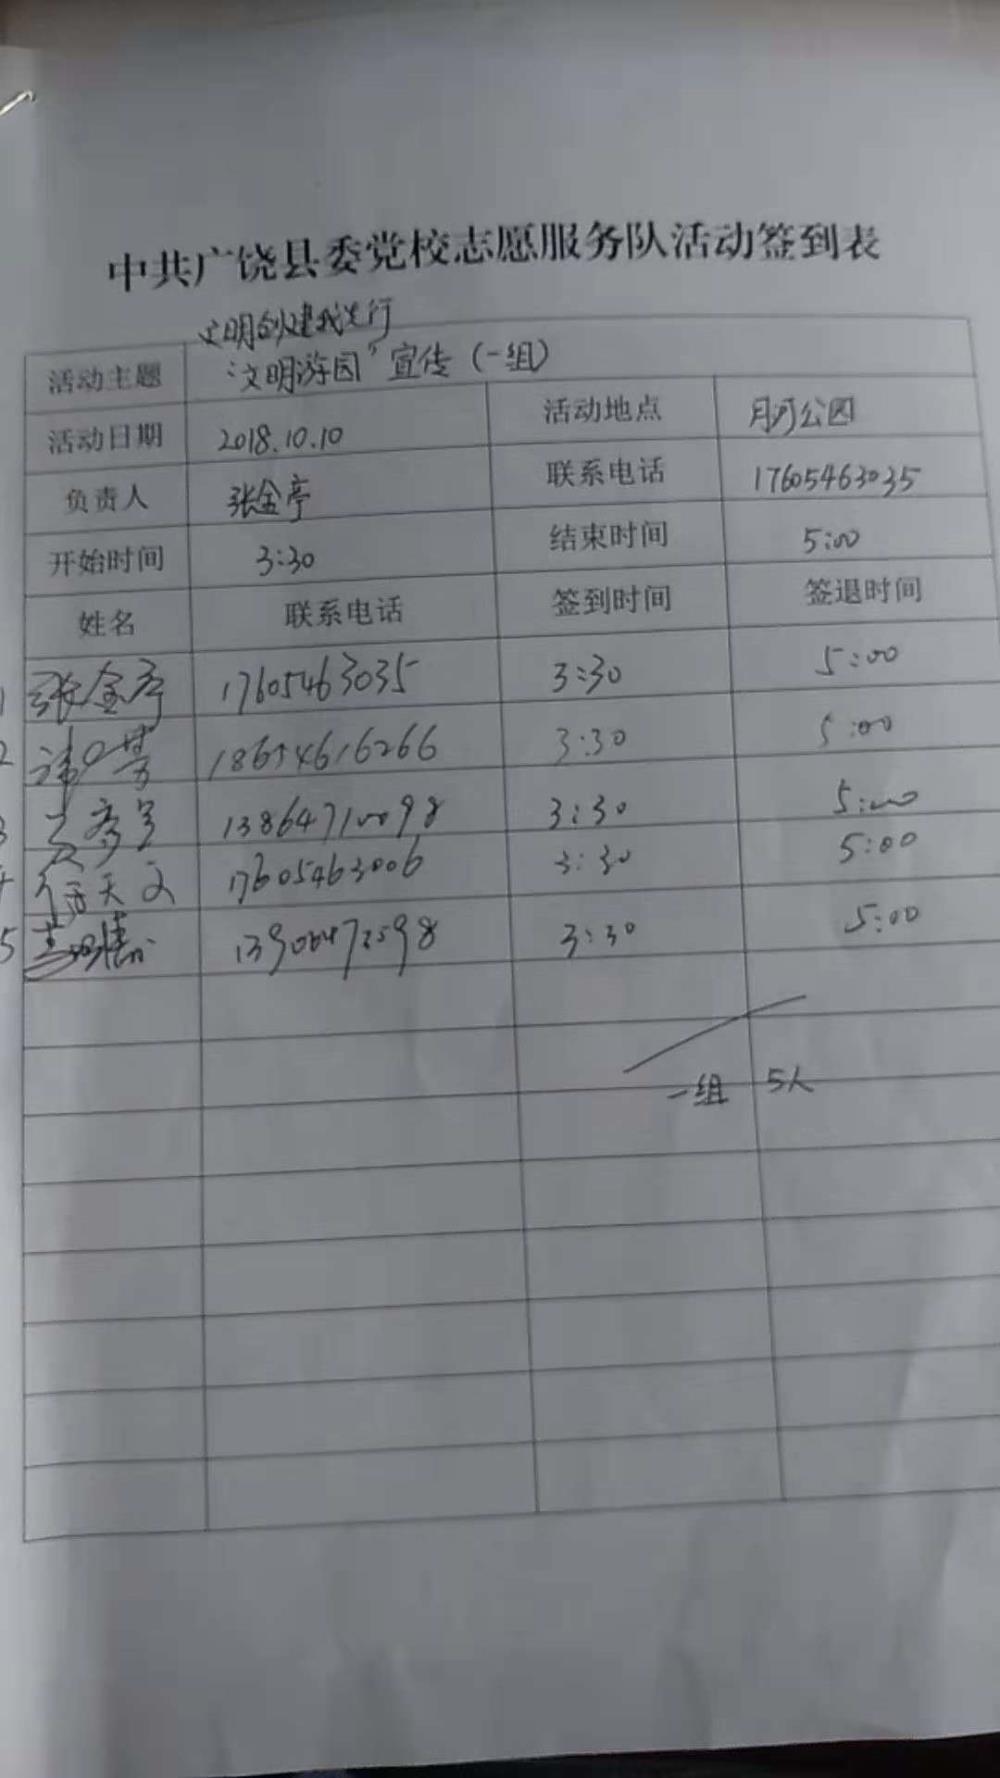 中共广饶县委党校志愿服务队活动签到表
文明创建我先行
活动主题 “文明游园”宣传（一组）
活动日期 2018.10.10 活动地点 月河公园
负责人 张金亭 联系电话 17605463035
开始时间 3:30 结束时间 5:00
姓名 联系电话 签到时间 签退时间
1 张金亭 17605463035 3:30 5:00
2 18654616266 3:30 5:00
3 13864710098 3:30 5:00
4 任天文 17605463006 3:30 5:00
5 3:30 5:00
一组 5人